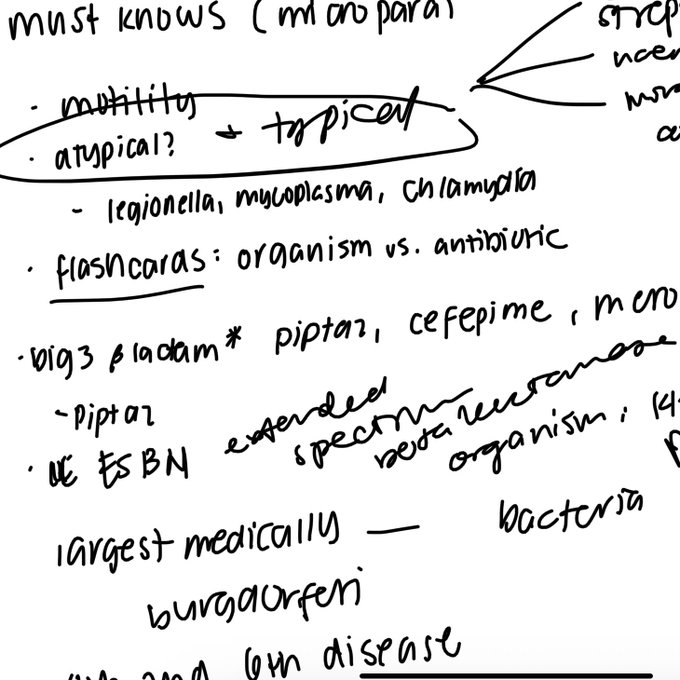 must knows (micropara)
strep
· motility
· atypical? + typical
- legionella, mycoplasma, chlamydia
· flashcards: organism vs. antibiotic
· big 3 β ladam* piptaz, cefepime, mero
- piptaz
· ESBN extended spectrum
organism,
largest medically — bacteria
burgdorferi
and 6th disease